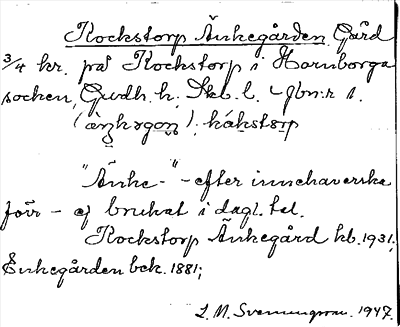 Kockstorp Änkegården Gård
3/4 kr. på Kockstorp i Hornborga
socken, Gudh. h. Skb. l. Jbn:r 1.
(àŋkəgoɳ); kákstorp
"Änke-" - efter innehaverska
förr - ej brukat i dagl. tal.
Kockstorp Änkegård kb. 1931;
Enkegården bck. 1881;
L. M. Svenungsson. 1947.